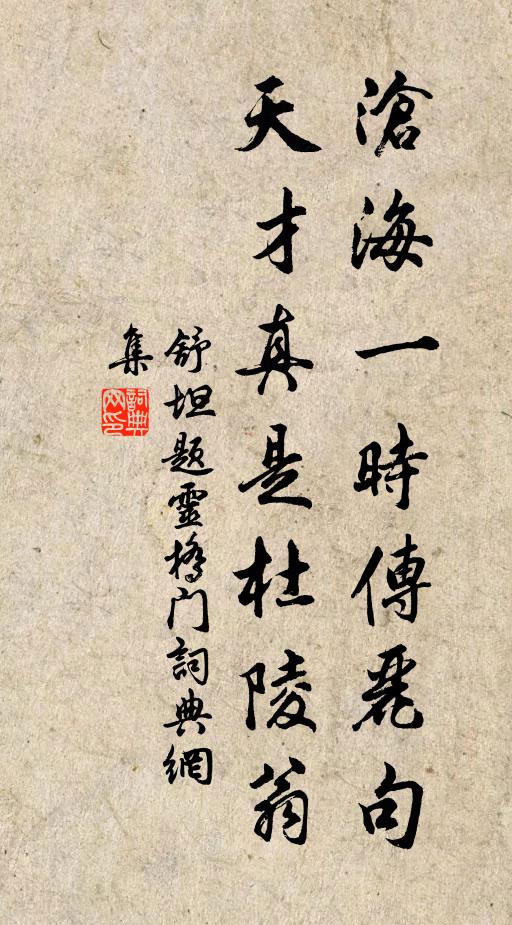 滄海一時傳麗句
天才真是杜陵翁
舒坦题靈橋门詞典網
集
詞典網印